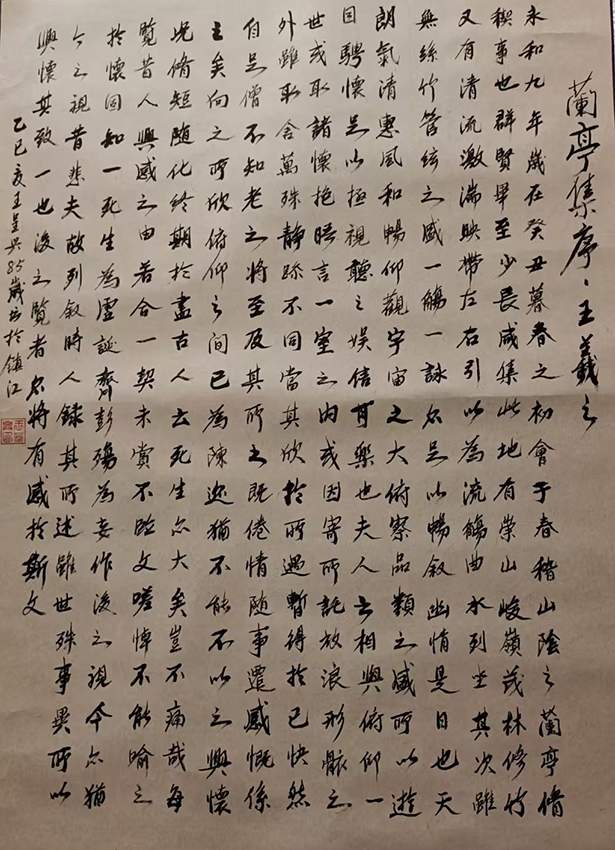 蘭亭集序·王羲之
永和九年歲在癸丑暮春之初會于春稽山陰之蘭亭脩
稧事也群賢畢至少長咸集此地有崇山峻嶺茂林修竹
又有清流激湍映帶左右引以為流觴曲水列坐其次雖
無絲竹管絃之盛一觴一詠亦足以暢敘幽情是日也天
朗氣清惠風和暢仰觀宇宙之大俯察品類之盛所以遊
目騁懷足以極視聽之娱信可樂也夫人之相與俯仰一
世或取諸懷抱晤言一室之内或因寄所託放浪形骸之
外雖取舍萬殊靜躁不同當其欣於所遇暫得於己快然
自足僧不知老之將至及其所之既倦情隨事遷感慨係
之矣向之所欣俯仰之間已為陳迹猶不能不以之興懷
况脩短隨化終期於盡古人云死生亦大矣豈不痛哉每
覽昔人興感之由若合一契未賞不臨文嗟悼不能喻之
於懷固知一死生為虛誕齊彭殤為妄作後之視今亦猶
今之視昔悲夫故列敘時人錄其所述雖世殊事異所以
興懷其致一也後之覽者亦將有感於斯文
乙巳夏王金兴85歲书於鎮江